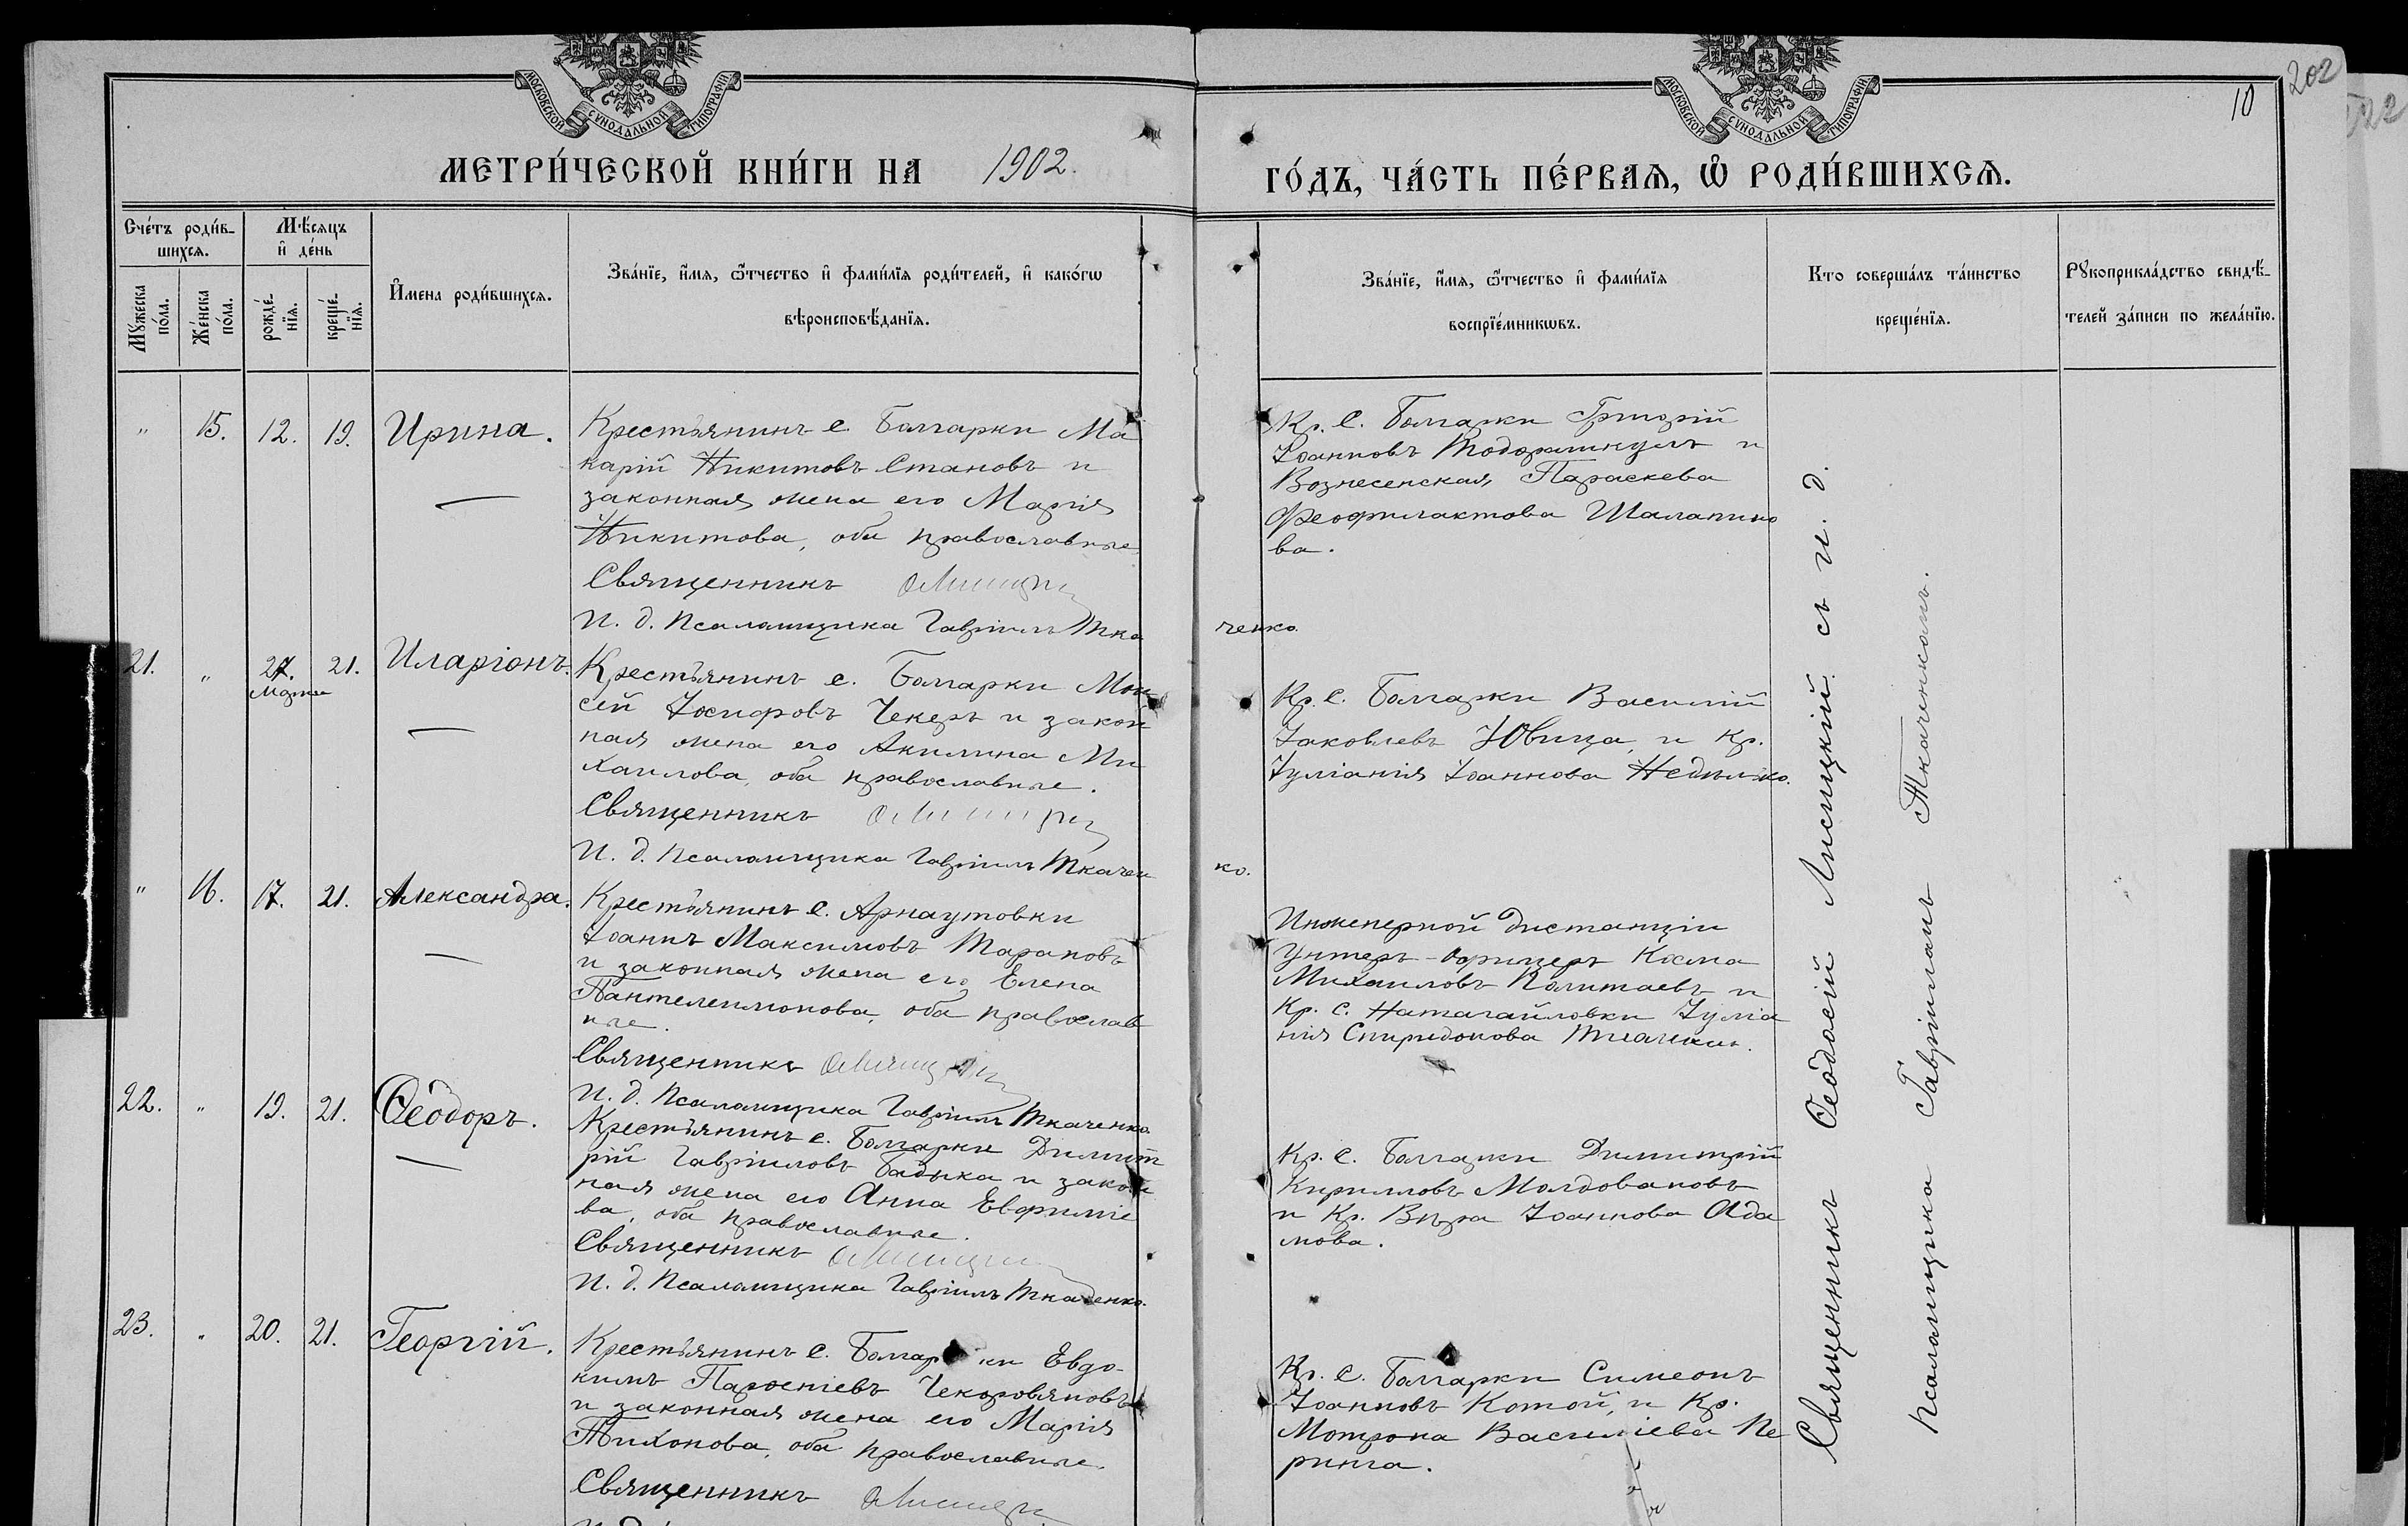 МОСКОВСКОЙ СѴНОДАЛЬНОЙ ТИПОГРАФІИ
МОСКОВСКОЙ СѴНОДАЛЬНОЙ ТИПОГРАФІИ
202
10
МЕТРИ́ЧЕСКОЙ КНИ́ГИ НА 1902.
ГО́ДЪ, ЧА́СТЬ ПЕ́РВАЯ, Ѿ РОДИ́ВШИХСЯ.
Сче́тъ роди́в-
шихся.
Мѣ́сяцъ
и де́нь
Му́жеска
по́ла.
Же́нска
по́ла.
рожде́-
нїя.
креще́-
нїя.
И҆мена роди́вшихся.
Зва́нїе, и҆́мя, ѻ҆́тчество и҆ фами́лїя роди́телей, и҆ како́гѡ
вѣроисповѣ́данїя.
Зва́нїе, и҆́мя, ѻ҆́тчество и҆ фами́лїя
воспрїе́мникѡвъ.
Кто совершалъ та́инство
креще́нїя.
Рꙋкоприкла́дство свидѣ́-
телей за́писи по жела́нїю.
" 15. 12. 19. Ирина.
Крестьянинъ с. Болгарки Ма
карій Никитовъ Становъ и
законная жена его Марія
Никитова, оба православные
Священникъ
И. д. Псаломщика Гавріилъ Ткаченко.
Кр. с. Болгарки Григорій
Іоанновъ и
Вознесенская Параскева
Феофилактова Шалапино
ва.
21. " 27. 21. Иларіонъ.
Марта
Крестьянинъ с. Болгарки Мои
сей Іосифовъ Чекеръ и закон
ная жена его Акилина Ми
хаилова, оба православные.
Священникъ
И. д. Псаломщика Гавріилъ Ткаченко.
Кр. с. Болгарки Василій
Іаковлевъ Ювица, и кр.
Іуліанія Іоаннова Недилько.
" 16. 17. 21. Александра.
Крестьянинъ с. Арнаутовки
Іоаннъ Максимовъ Тарановъ
и законная жена его Елена
Пантелеимонова, оба православ
ные.
Священникъ
И. д. Псаломщика Гавріилъ Ткаченко.
Инженерной дистанціи
Унтеръ-офицеръ Косма
Михаиловъ Политаевъ и
Кр. с. Натягайловки Іуліа
нія Спиридонова
22. " 19. 21. Ѳеодоръ.
Крестьянинъ с. Болгарки Димит
рій Гавріиловъ Бадыка и закон
ная жена его Анна Евфиміе
ва, оба православные.
Священникъ
И. д. Псаломщика Гавріилъ Ткаченко.
Кр. с. Болгарки Димитрій
Кирилловъ Молдовановъ
и кр. Вѣра Іоаннова Ада
мова.
23. " 20. 21. Георгій.
Крестьянинъ с. Болгарки Евдо-
кимъ Парѳеніевъ Чекировяновъ
и законная жена его Марія
Тихонова, оба православные.
Священникъ
Кр. с. Болгарки Симеонъ
Іоанновъ Котой, и кр.
Мотрона Василіева Пе
ринга.
Священникъ Ѳеодосій Лисицкій съ и. д.
псаломщика Гавріиломъ Ткаченкомъ.